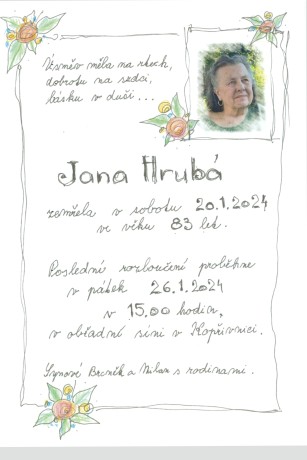 Úsměv měla na rtech,
dobrotu na srdci,
lásku v duši...
Jana Hrubá
zemřela v sobotu 20.1.2024
ve věku 83 let.
Poslední rozloučení proběhne
v pátek 26.1.2024
v 15.00 hodin,
v obřadní síni v Kopřivnici.
Synové a Milan s rodinami.